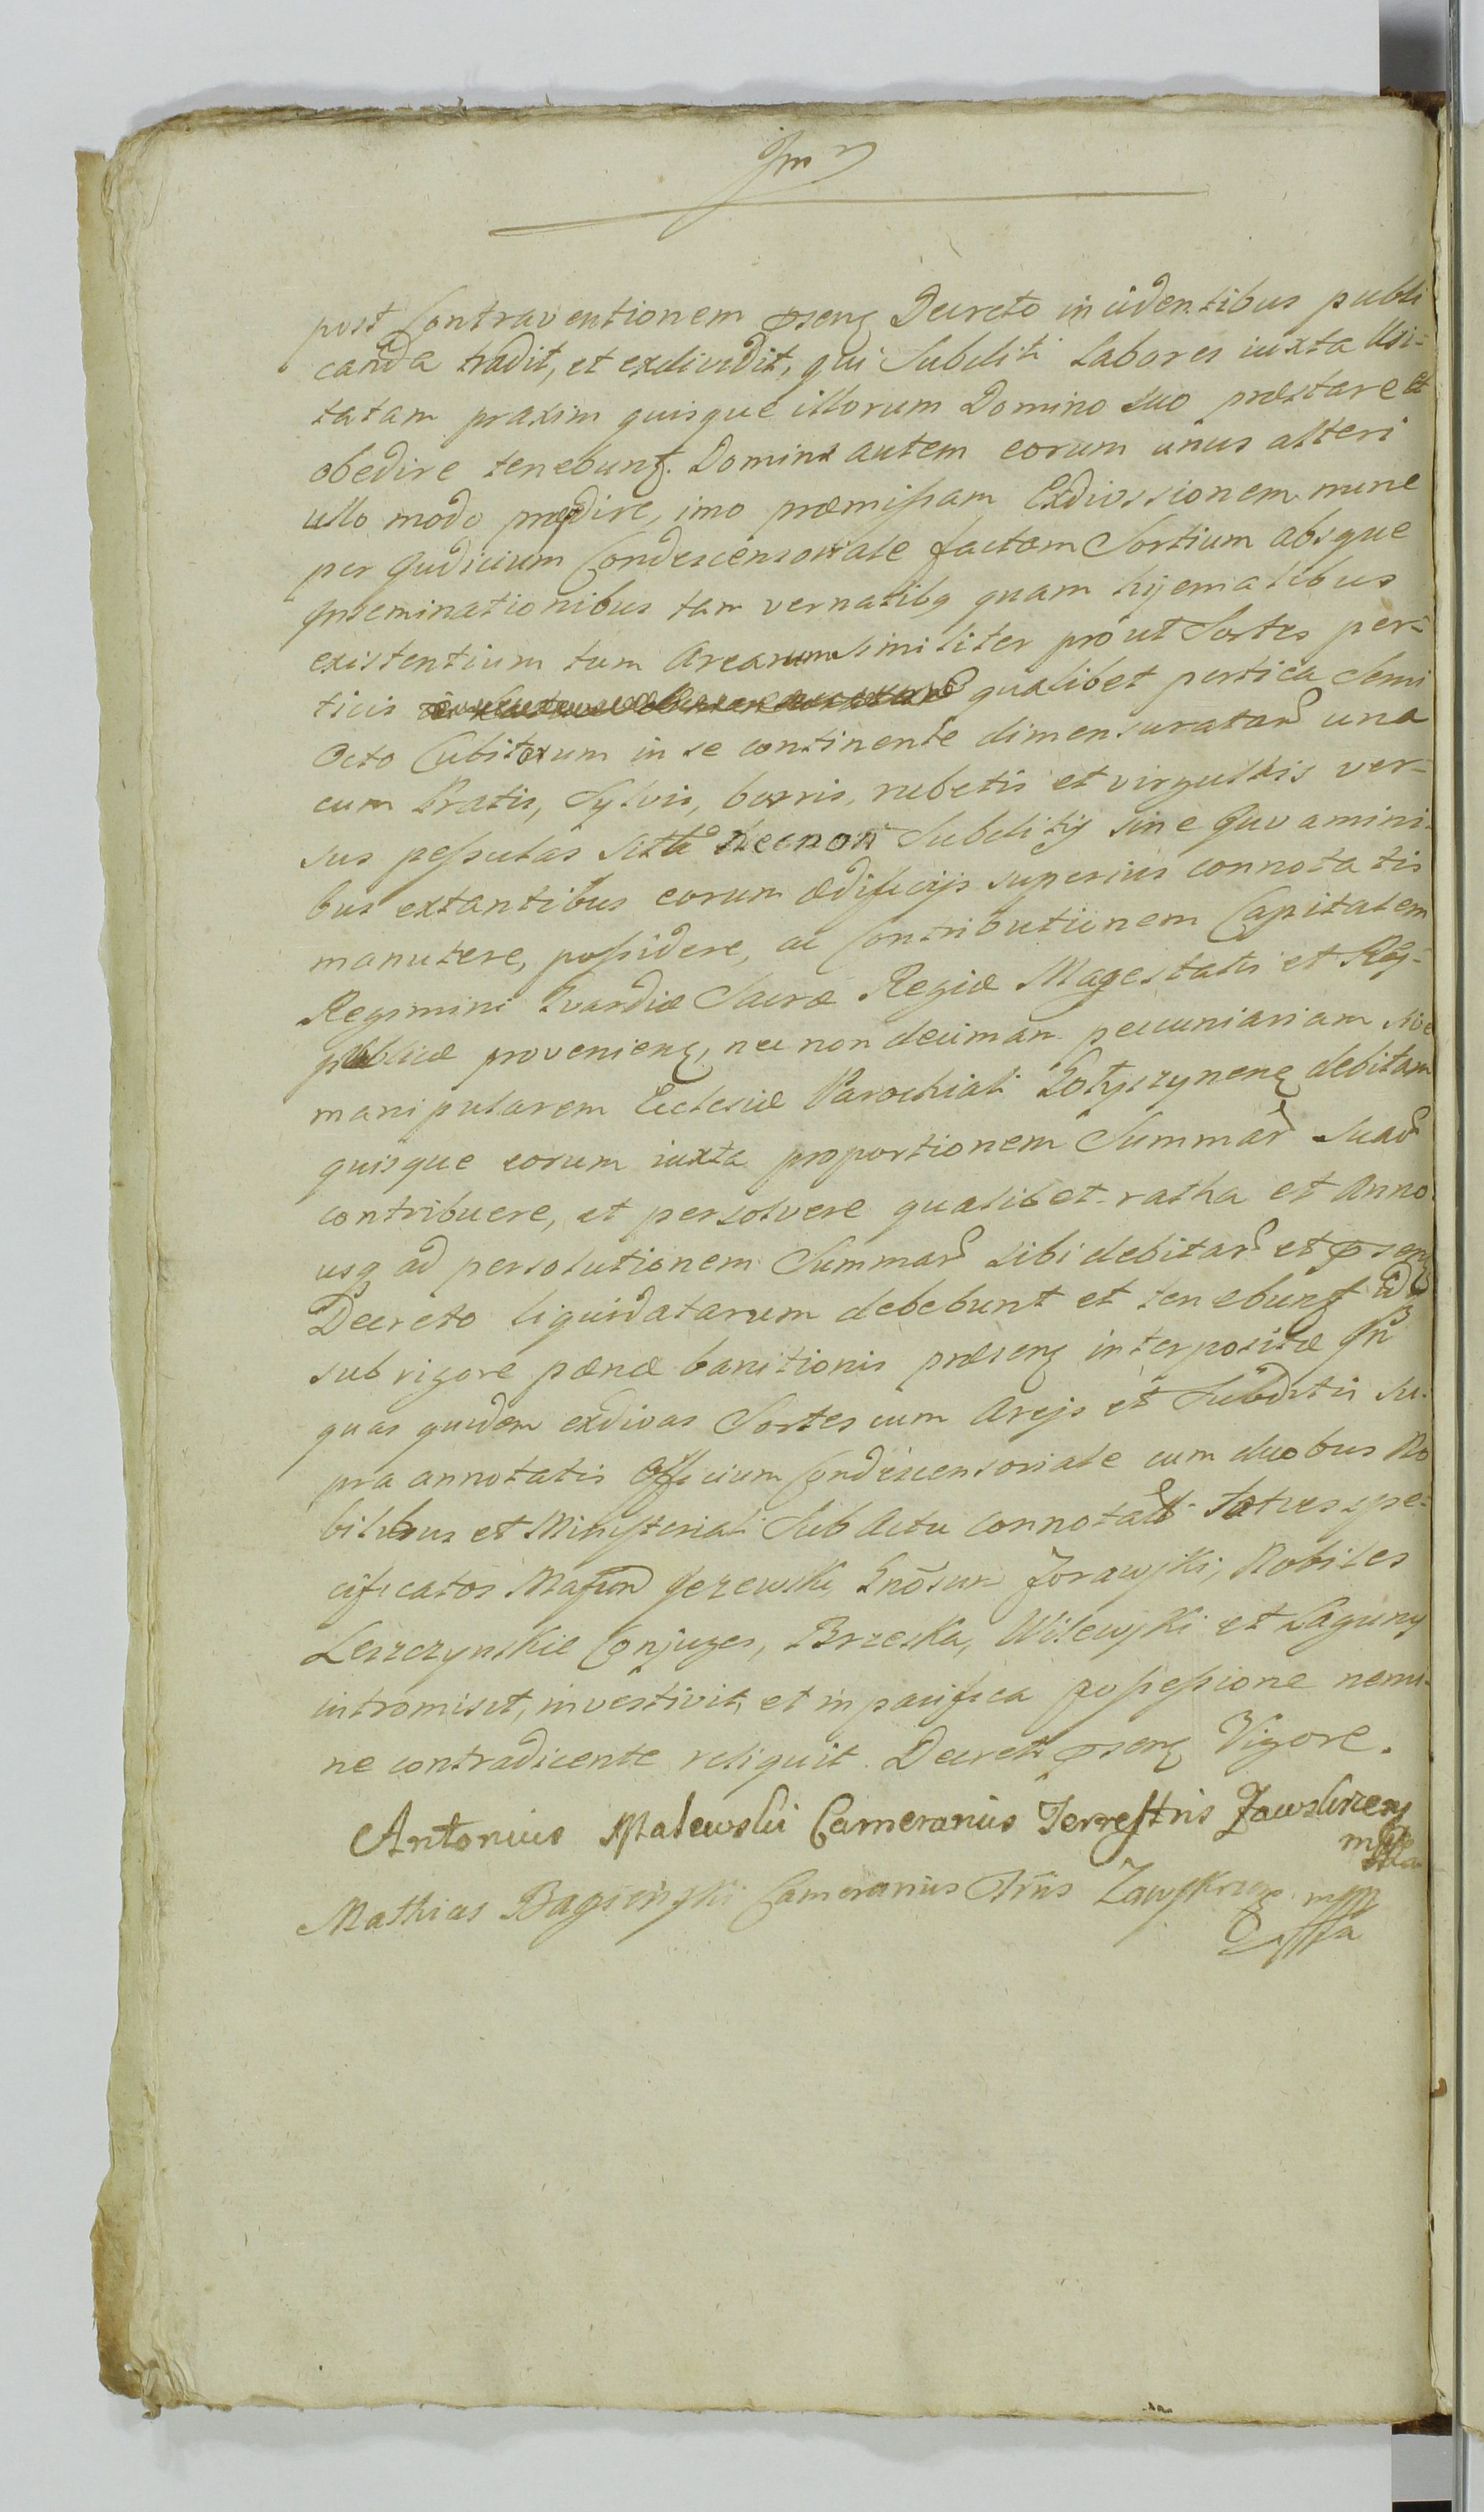 post Contraventionem pseng Decreto incidentibus publi
canda tradit, et exdividit, qui Subditi Labores iuxta Usi-
tatam praxim quisque illorum Domino suo præstare et
obedire tenebunt. Domini autem eorum unus alteri
ullo modo præpedire, imo præmissam Exdivisionem nunc
per Judicium Condescensoriale factam Sortium absque
Inseminationibus tam vernalibq quam hyemalibus
existentium tum Arearum similiter prout Sortes per-
ticis qualibet pertica Semi
Octo Cubitorum in se continente dimensuratar una
cum Pratis, Sylvis, borris, rubetis et virgultis ver-
sus Necnon Subditis sine Juvamini-
bus extantibus eorum ædificijs superius connotatis
manutere, possidere, ac Contributionem Capitalem
Regimini Gvardiæ Sacræ Regiæ Magestatis et Rei-
publicæ provenieng, nec non decimam pecuniariam sive
manipularem Ecclesiæ Parochiali debitam
quisque eorum iuxta proportionem Summar suar
contribuere, et persolvere qualibet ratha et Anno
usq ad persolutionem Summar sibi debitar et pseng
Decreto liquidatarum debebunt et tenebunt idq
sub rigore pænæ banitionis præseng interpositæ In
quas quidem exdivas Sortes cum Arejs et Subditis su-
pra annotatis Officium Condescensoriale cum duobus No
bilibus et Ministeriali Sub Actu connotatis spe-
cificatos Magfum Jezewski, Gnosum Zorawski, Nobiles
Leszczynskie Conjuges, Brzeska, Wilewski et Laguny
intromisit, investivit, et in pacifica possessione nemi-
ne contradicente reliquit. Decreti pseng Vigore.
Antonius Malewski Cameranius Terrestris Zawskrzeng
mppa
Mathias Bagieński Cameranius Trris Zawskrzng mpp